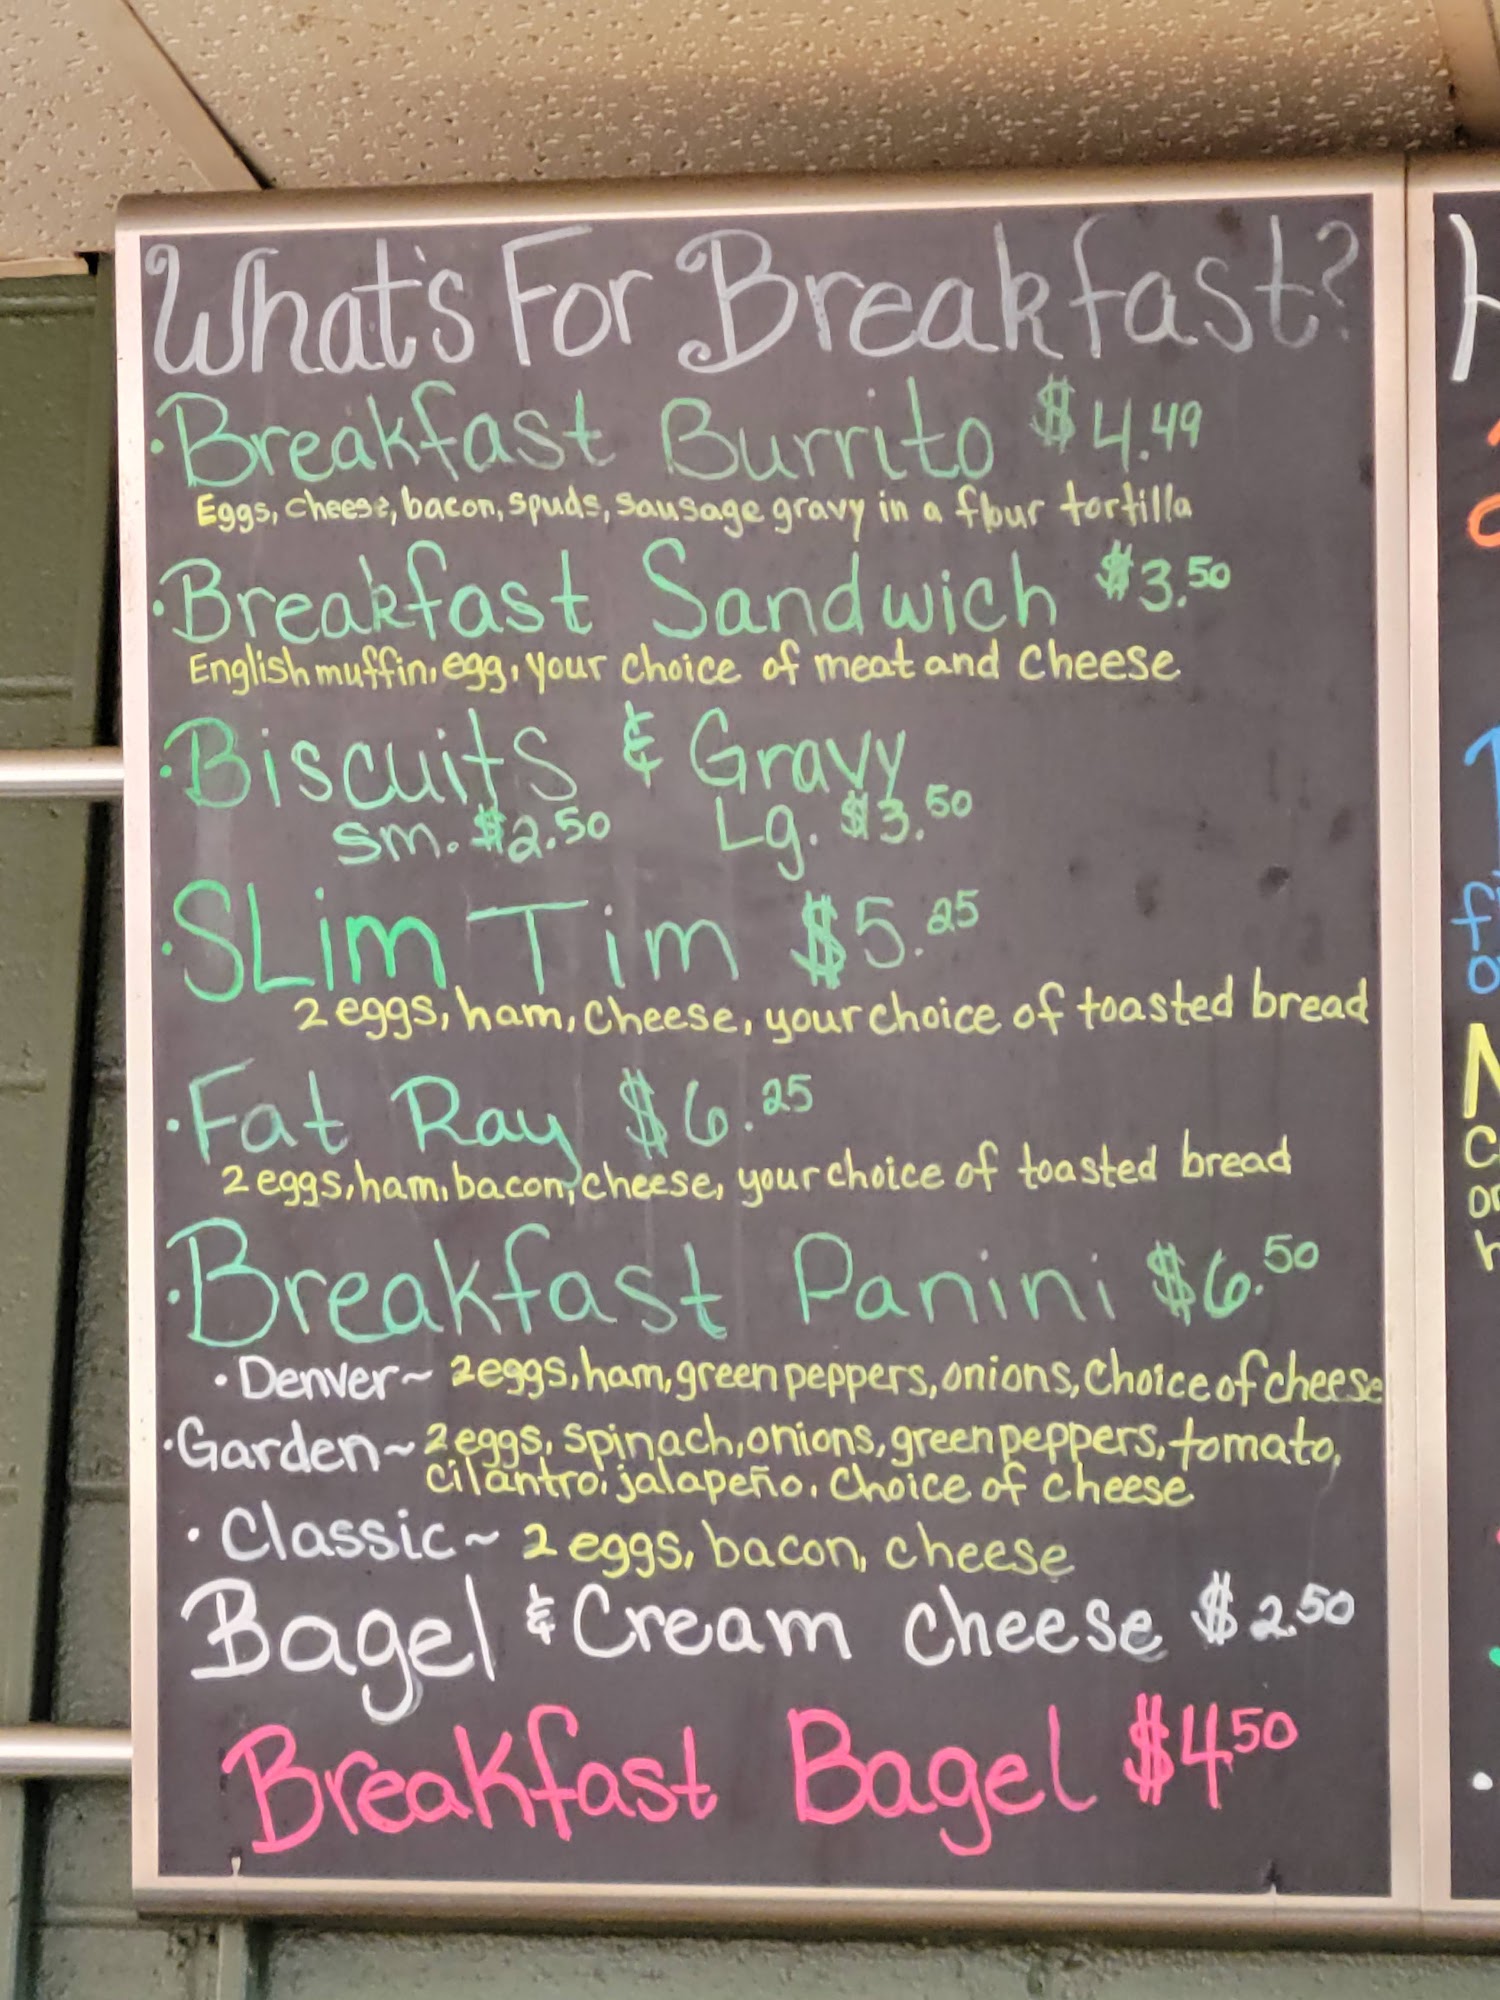 What's For Breakfast?
• Breakfast Burrito $4.49
Eggs, cheese, bacon, spuds, sausage gravy in a flour tortilla
• Breakfast Sandwich $3.50
English muffin, egg, your choice of meat and cheese
• Biscuits & Gravy
Sm. $2.50 Lg. $3.50
• SLim Tim $5.25
2 eggs, ham, cheese, your choice of toasted bread
• Fat Ray $6.25
2 eggs, ham, bacon, cheese, your choice of toasted bread
• Breakfast Panini $6.50
• Denver~ 2 eggs, ham, green peppers, onions, choice of cheese
• Garden~ 2 eggs, spinach, onions, green peppers, tomato,
cilantro, jalapeño. Choice of cheese
• Classic~ 2 eggs, bacon, cheese
Bagel & Cream cheese $2.50
Breakfast Bagel $4.50